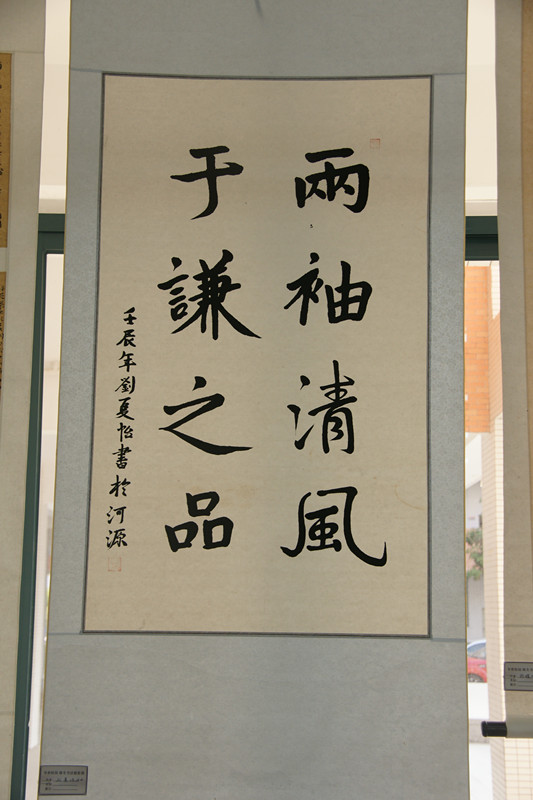 兩袖清風
于謙之品
壬辰年劉夏怡書於河源